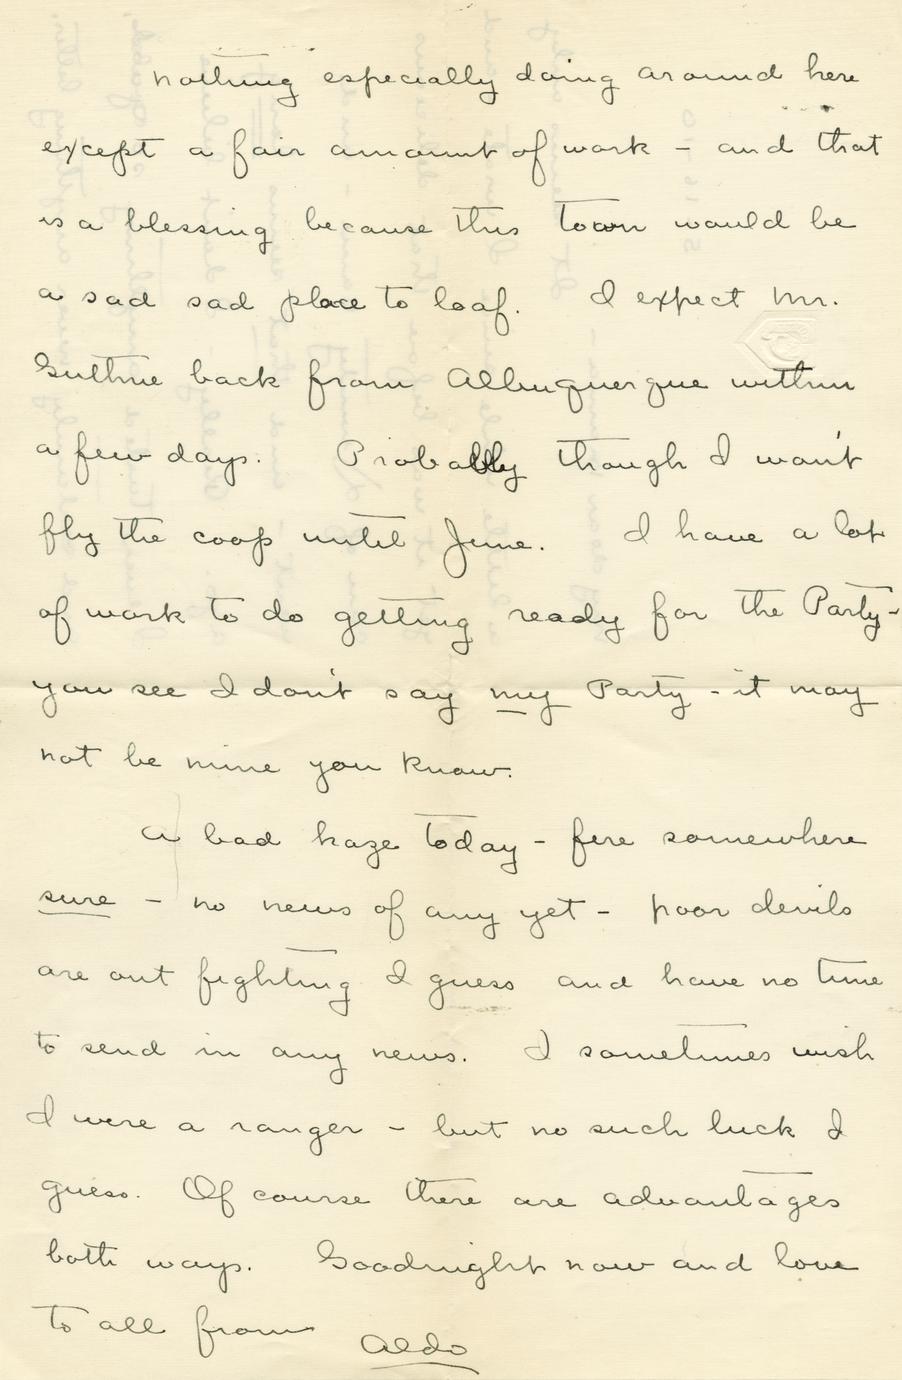 nothing especially doing around here
except a fair amount of work - and that
is a blessing because this town would be
a sad sad place to loaf. I expect Mr.
Guthrie back from Albuquerque within
a few days. Probably though I won't
fly the coop until June. I have a lot
of work to do getting ready for the Party-
you see I don't say my Party - it may
not be mine you know.
A bad haze today - fire somewhere
sure - no news of any yet - poor devils
are out fighting I guess and have no time
to send in any news. I sometimes wish
I were a ranger - but no such luck I
guess. Of course there are advantages
both ways. Goodnight now and love
to all from
Aldo